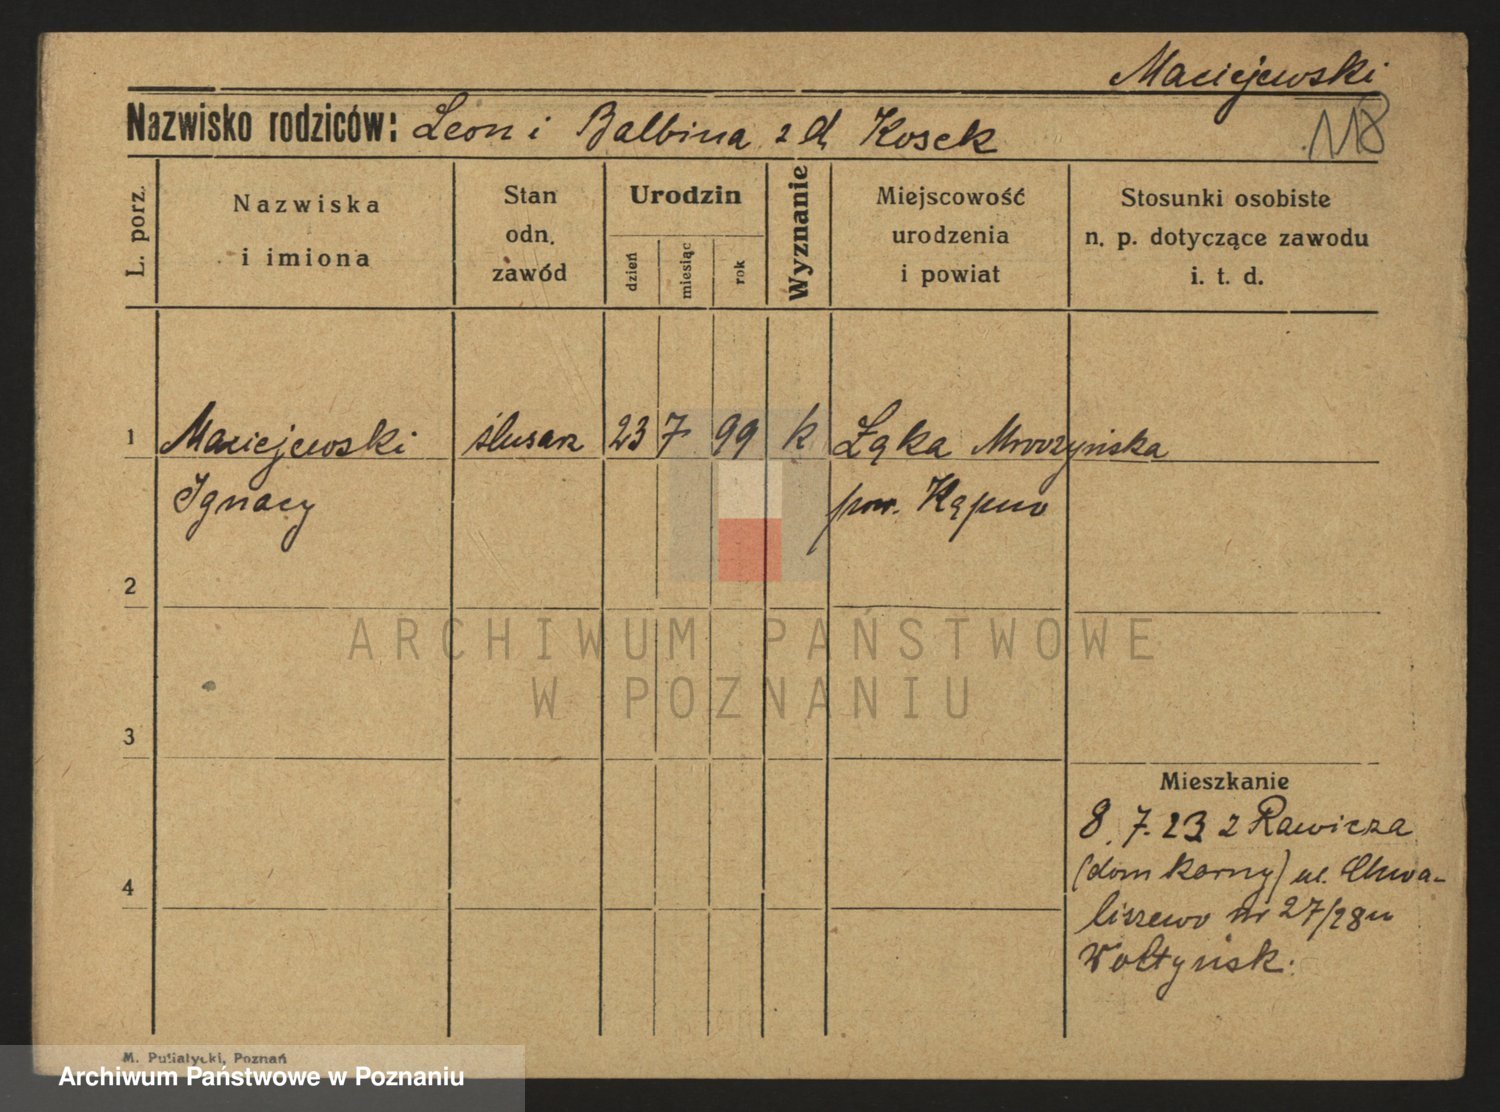 Maciejewski
Nazwisko rodziców: Leon i Balbina z d Kosek
118
L. porz.
Nazwiska
i imiona
Stan
odn.
zawód
Urodzin
dzień
miesiąc
rok
Wyznanie
Miejscowość
urodzenia
i powiat
Stosunki osobiste
n. p. dotyczące zawodu
i. t. d.
1 Maciejewski ślusarz 23 7 99 k Łąka Mroczyńska
Ignacy pow. Kąpno
2
ARCHIWUM PAŃSTWOWE
W POZNANIU
3
Mieszkanie
8.7.23 z Rawicza
(dom karny) ul. Chwa-
4
liszewo nr 27/28 u
Wołtyńsk.
M. Putiatycki, Poznań
Archiwum Państwowe w Poznaniu